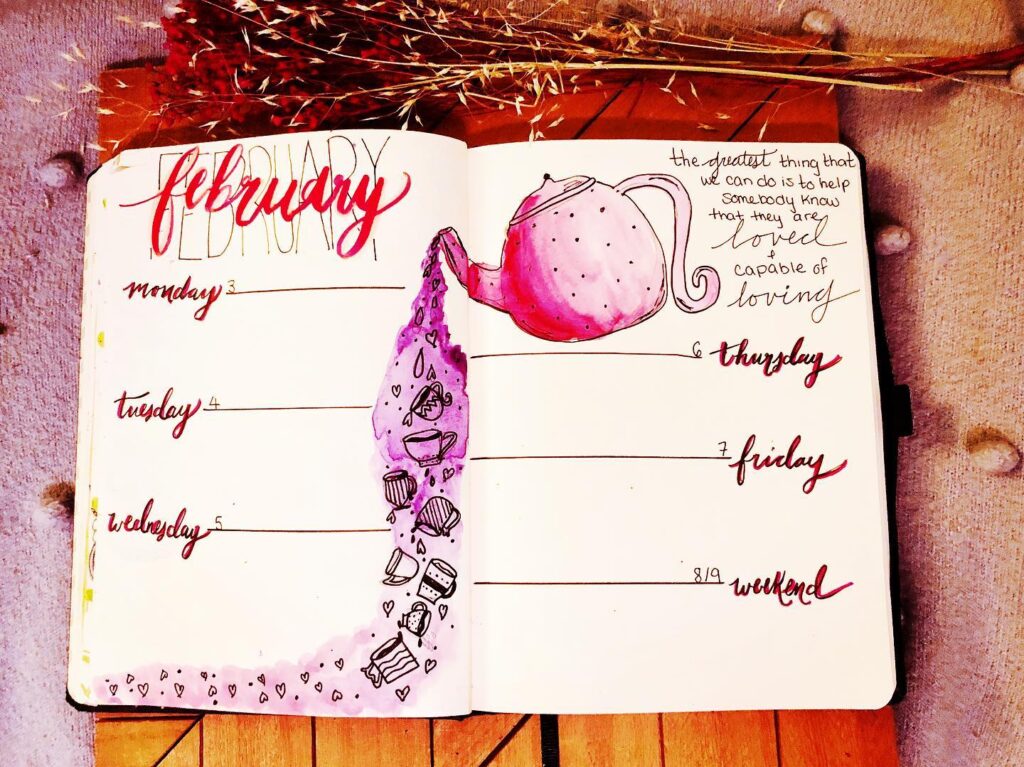 FEBRUARY
february
FEBRUARY
monday 3
tuesday 4
wednesday 5
the greatest thing that
we can do is to help
somebody know
that they are
loved
+
capable of
loving
6 thursday
7 friday
8/9 weekend